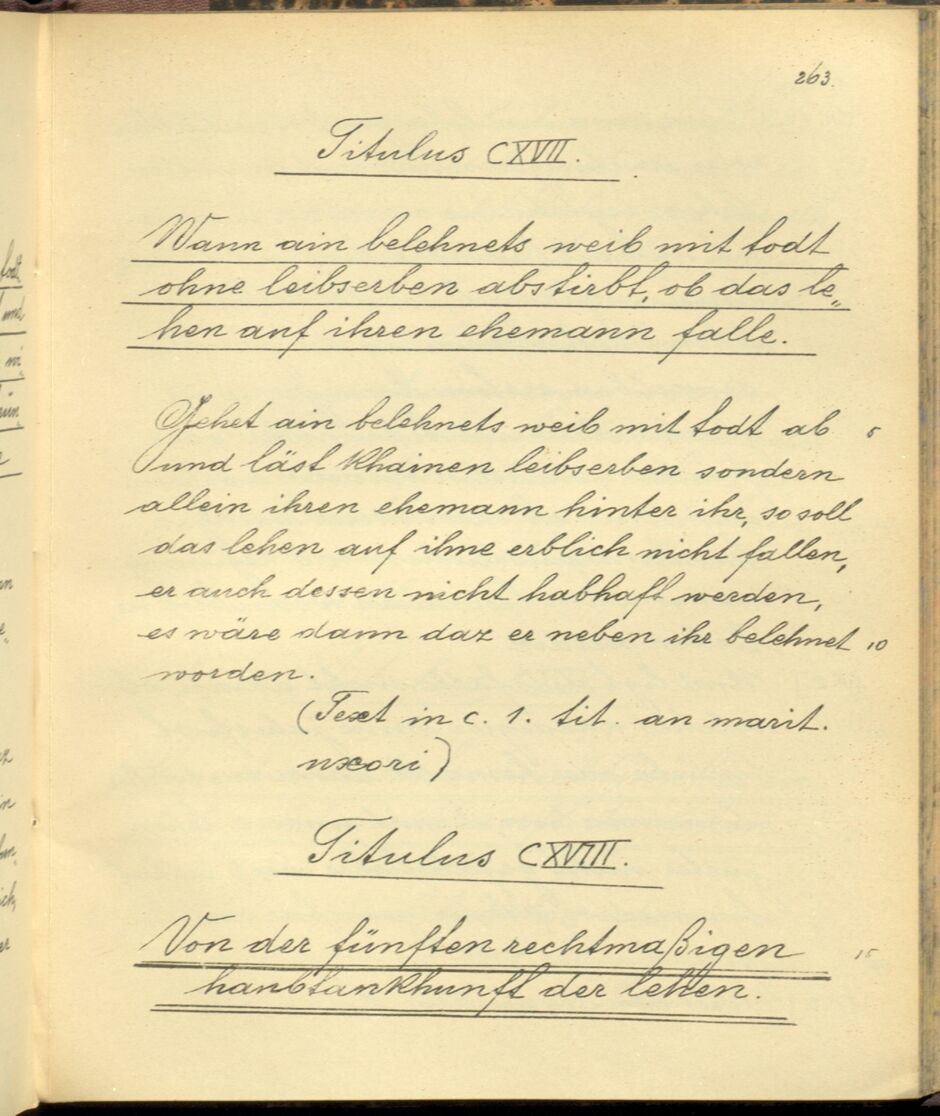 263.
Titulus CXVII.
Wann ain belehnets weib mit todt
ohne leibserben abstirbt, ob das le„
hen auf ihren ehemann falle.
Gehet ain belehnets weib mit todt ab 5
und läst khainen leibserben sondern
allein ihren ehemann hinter ihr, so soll
das lehen auf ihne erblich nicht fallen,
er auch dessen nicht habhaft werden,
es wäre dann daz er neben ihr belehnet 10
worden.
(Text in c. 1. tit. an marit.
uxori)
Titulus CXVIII.
Von der fünften rechtmaßigen 15
haubtankhunft der lehen.